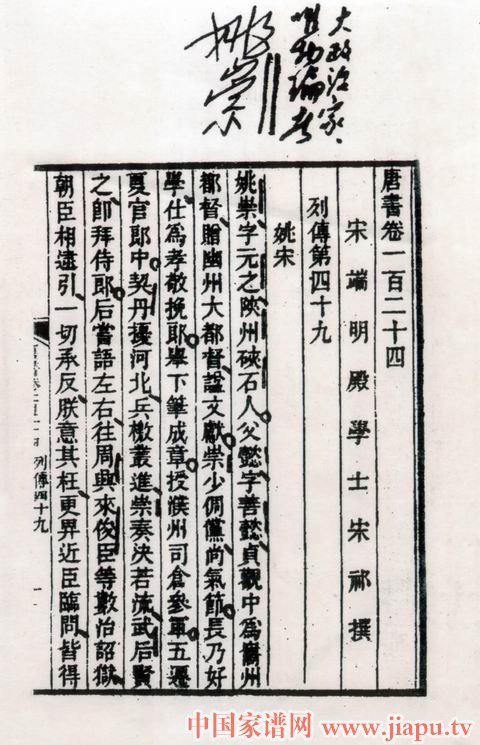 大政治家、
唯物论者
姚崇
唐書卷一百二十四
宋端明殿學士宋祁撰
列傳第四十九
姚宋
姚崇字元之陝州硤石人父懿字善懿貞觀中爲巂州
都督贈幽州大都督謚文獻崇少倜儻尚氣節長乃好
學仕爲孝敬挽郎舉下筆成章授濮州司倉參軍五遷
夏官郎中契丹擾河北兵檄叢進崇奏決若流武后賢
之卽拜侍郎后嘗語左右往周興來俊臣等數治詔獄
朝臣相逮引一切承反朕意其枉更畀近臣臨問皆得
列傳四十九
一
中国家谱网 www.jiapu.tv